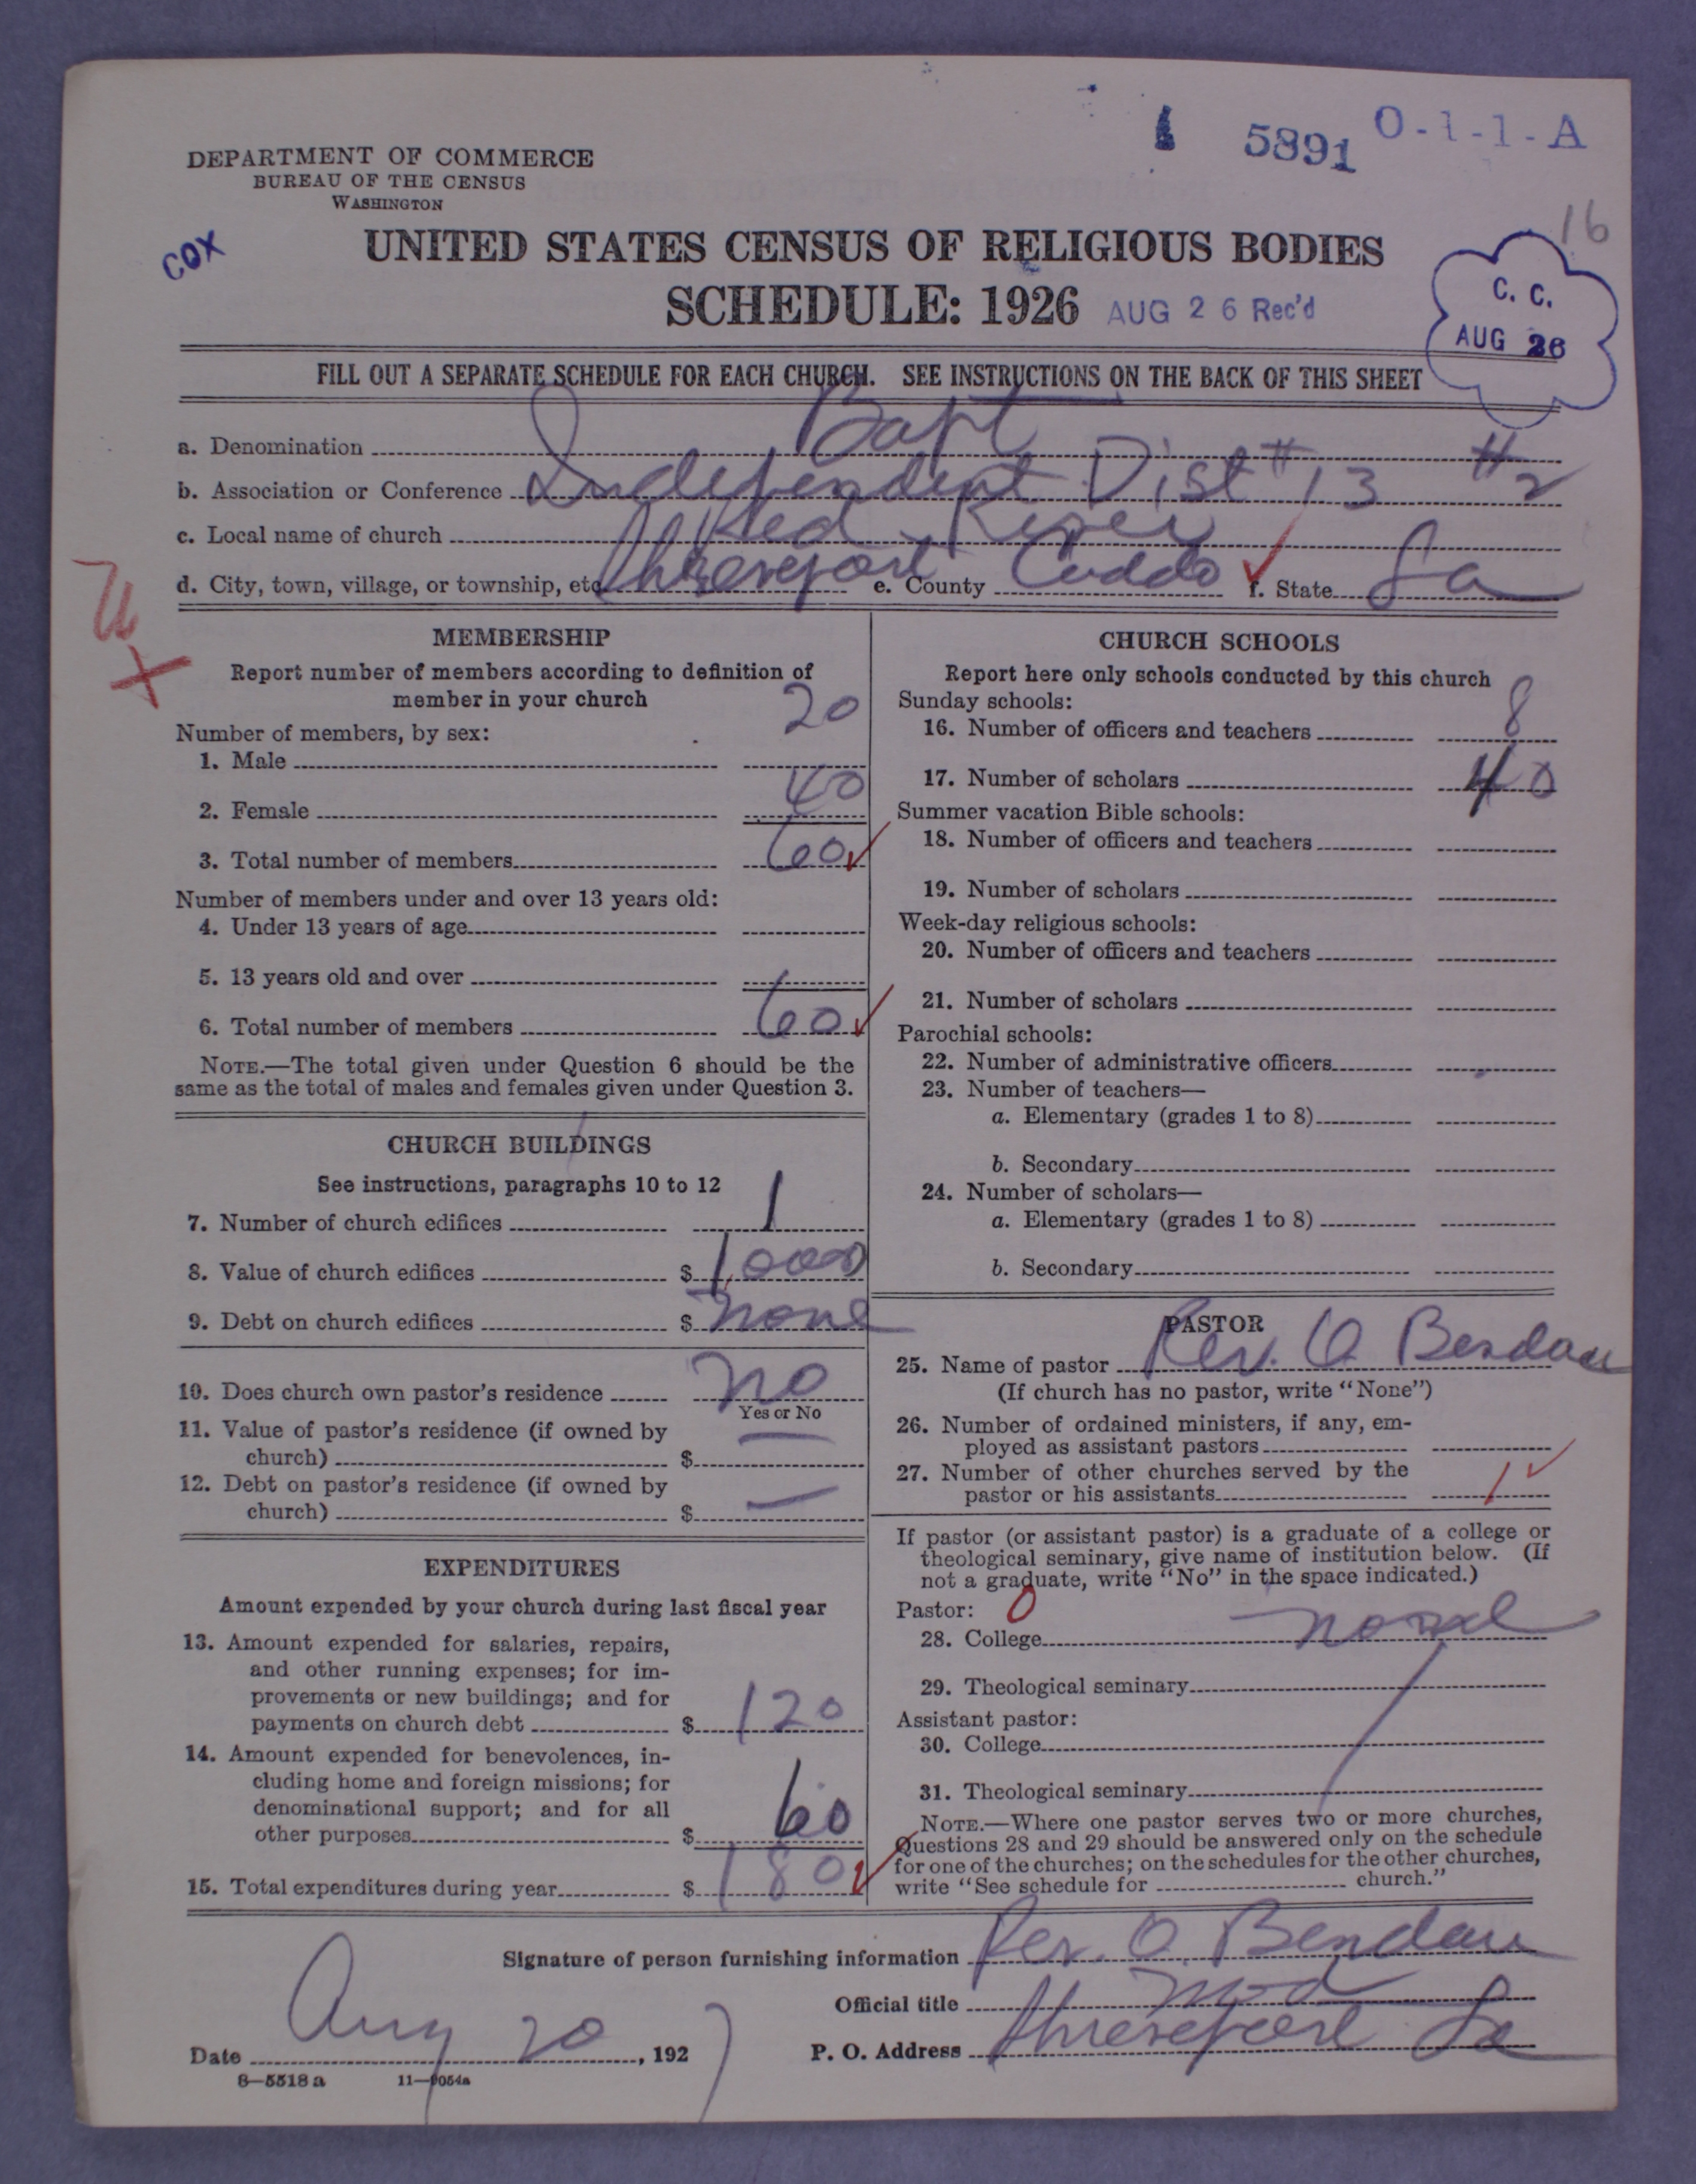 5891 O-1-1-A
DEPARTMENT OF COMMERCE
BUREAU OF THE CENSUS
WASHINGTON
16
COX
UNITED STATES CENSUS OF RELIGIOUS BODIES
SCHEDULE: 1926 AUG 26 Rec'd
C. C.
AUG 26
FILL OUT A SEPARATE SCHEDULE FOR EACH CHURCH. SEE INSTRUCTIONS ON THE BACK OF THIS SHEET
a. Denomination Bapt
b. Association or Conference Independent Dist # 13 #2
c. Local name of church Red River
d. City, town, village, or township, etc. e. County Caddo f. State La
MEMBERSHIP
Report number of members according to definition of
member in your church
Number of members, by sex:
1. Male 20
2. Female 40
3. Total number of members 60
Number of members under and over 13 years old:
4. Under 13 years of age
5. 13 years old and over
6. Total number of members 60
NOTE.—The total given under Question 6 should be the
same as the total of males and females given under Question 3.
CHURCH BUILDINGS
See instructions, paragraphs 10 to 12
7. Number of church edifices 1
8. Value of church edifices $ 1,000
9. Debt on church edifices $ none
10. Does church own pastor's residence no
Yes or No
11. Value of pastor's residence (if owned by
church) $ —
12. Debt on pastor's residence (if owned by
church) $ —
EXPENDITURES
Amount expended by your church during last fiscal year
13. Amount expended for salaries, repairs,
and other running expenses; for im-
provements or new buildings; and for
payments on church debt $ 120
14. Amount expended for benevolences, in-
cluding home and foreign missions; for
denominational support; and for all
other purposes $ 60
15. Total expenditures during year $ 180
CHURCH SCHOOLS
Report here only schools conducted by this church
Sunday schools:
16. Number of officers and teachers 8
17. Number of scholars 40
Summer vacation Bible schools:
18. Number of officers and teachers
19. Number of scholars
Week-day religious schools:
20. Number of officers and teachers
21. Number of scholars
Parochial schools:
22. Number of administrative officers
23. Number of teachers—
a. Elementary (grades 1 to 8)
b. Secondary
24. Number of scholars—
a. Elementary (grades 1 to 8)
b. Secondary
PASTOR
25. Name of pastor Rev. O
(If church has no pastor, write "None")
26. Number of ordained ministers, if any, em-
ployed as assistant pastors
27. Number of other churches served by the
pastor or his assistants 1
If pastor (or assistant pastor) is a graduate of a college or
theological seminary, give name of institution below. (If
not a graduate, write "No" in the space indicated.)
Pastor: 0
28. College
29. Theological seminary
Assistant pastor:
30. College
31. Theological seminary
NOTE.—Where one pastor serves two or more churches,
Questions 28 and 29 should be answered only on the schedule
for one of the churches; on the schedules for the other churches,
write "See schedule for church."
Signature of person furnishing information Rev. O.
Official title
Date Aug 20, 1927 P. O. Address La
8—5518 a 11—9054a